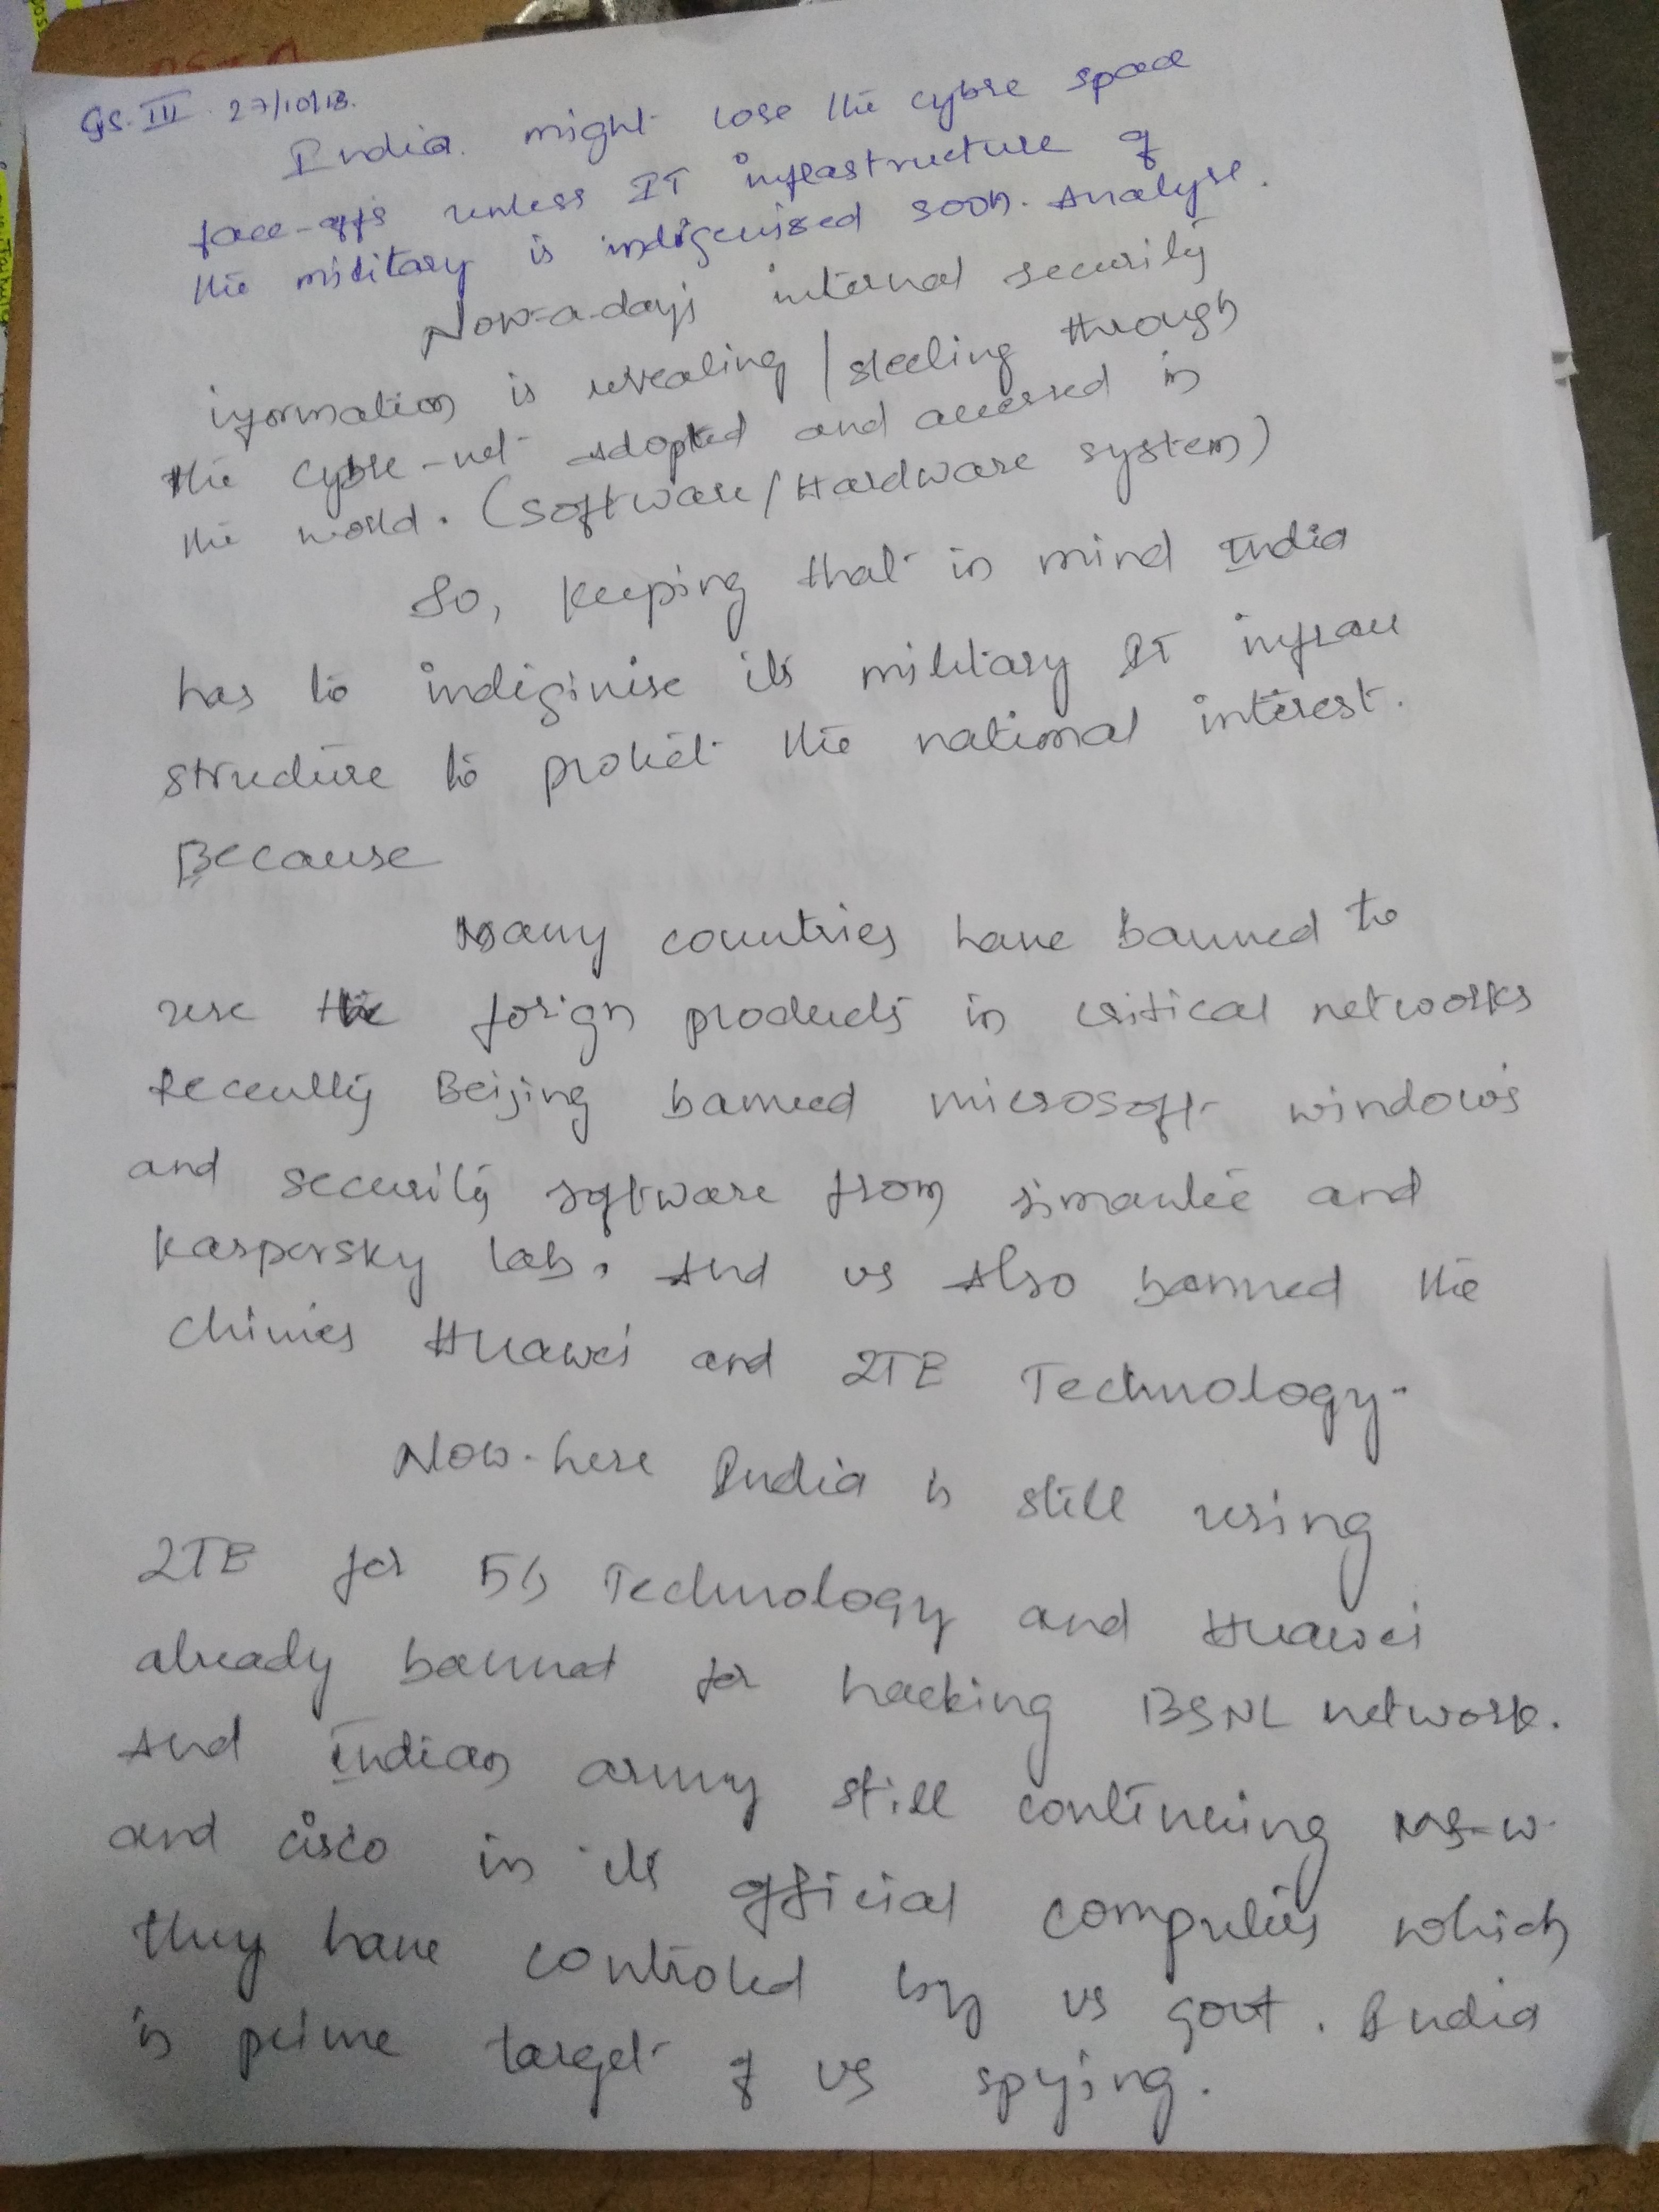 GS. III. 27/10/18.
India might lose the cybre space
face-offs unless IT infrastructure of
the military is indigenised soon. Analyse.
Now-a-days internal security
information is revealing / steeling through
the cybre-net adopted and accessed in
the world. (software/Hardware system)
So, keeping that in mind India
has to indiginise its military IT infrau
structure to protect the national interest.
Because
Many countries have banned to
use the forign products in critical networks
Recently Beijing banned microsoft windows
and security software from simantec and
Kaspersky lab. And US Also banned the
Chinies Huawei and ZTE Technology.
Now-here India is still using
ZTE for 5G Technology and Huawei
already banned for hacking BSNL network.
And Indian army still continuing MS-W
and cisco in its official computers which
they have controled by US govt. India
is prime target of US spying.